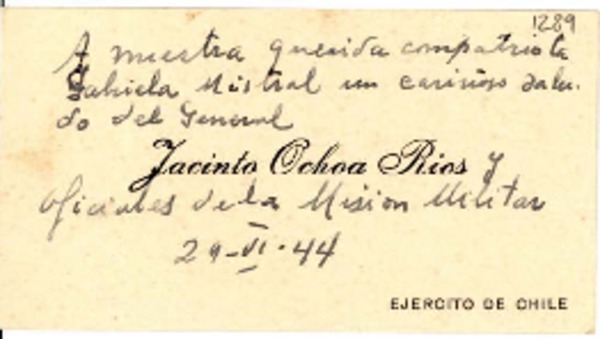 1289
A nuestra querida compatriota
Gabriela Mistral un cariñoso salu-
do del General
Jacinto Ochoa Rios y
Oficiales de la Mision Militar
29-VI-44
EJERCITO DE CHILE